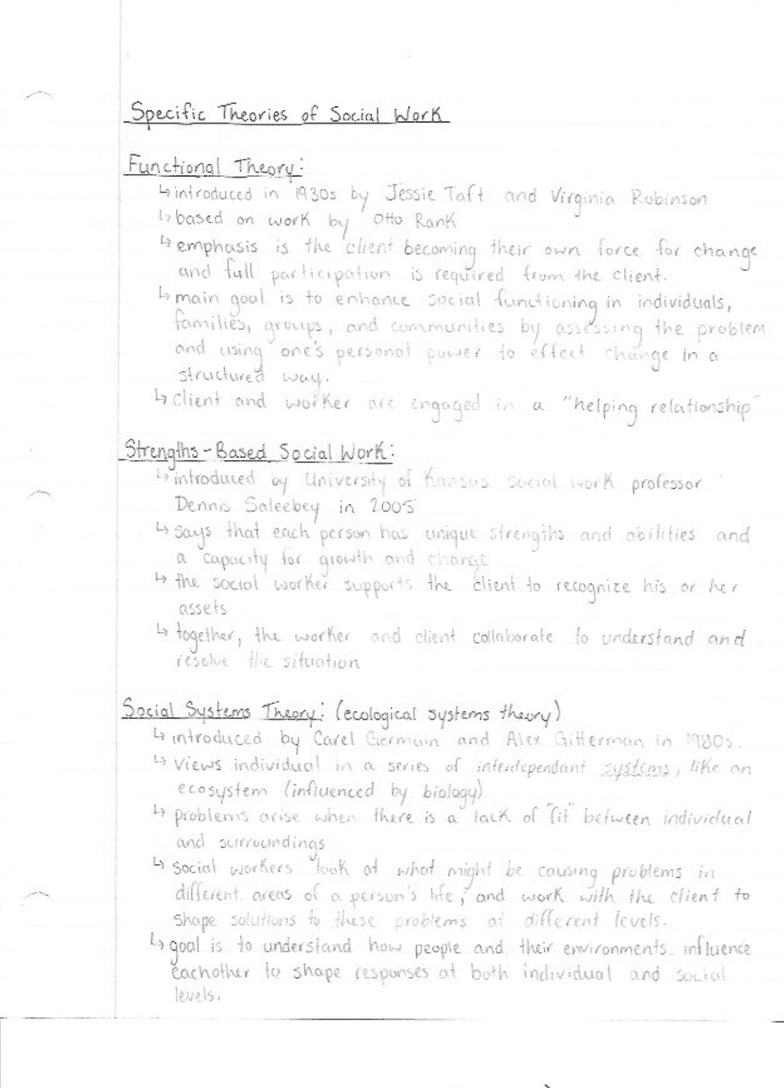 Specific Theories of Social Work
Functional Theory:
↳ introduced in 1930s by Jessie Taft and Virginia Robinson
↳ based on work by Otto Rank
↳ emphasis is the client becoming their own force for change
and full participation is required from the client.
↳ main goal is to enhance social functioning in individuals,
families, groups, and communities by assessing the problem
and using one's personal power to effect change in a
structured way.
↳ client and worker are engaged in a "helping relationship"
Strengths-Based Social Work:
↳ introduced by University of Kansas social work professor
Dennis Saleebey in 2005
↳ says that each person has unique strengths and abilities and
a capacity for growth and change
↳ the social worker supports the client to recognize his or her
assets
↳ together, the worker and client collaborate to understand and
resolve the situation
Social Systems Theory: (ecological systems theory)
↳ introduced by Carel Germain and Alex Gitterman in 1980s.
↳ views individual in a series of interdependant systems, like an
ecosystem (influenced by biology)
↳ problems arise when there is a lack of "fit" between individual
and surroundings
↳ social workers look at what might be causing problems in
different areas of a person's life, and work with the client to
shape solutions to these problems at different levels.
↳ goal is to understand how people and their environments influence
eachother to shape responses at both individual and social
levels.